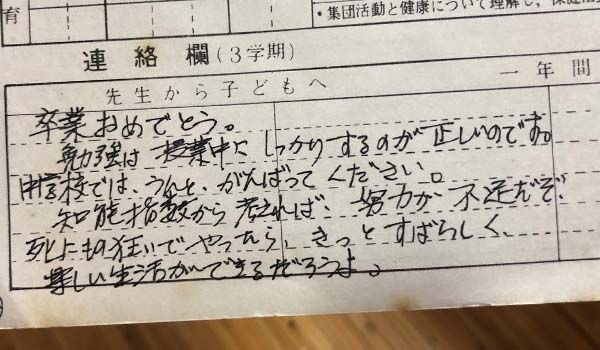 育
・集団活動と健康について理解し，保健
連絡欄(３学期)
先生から子どもへ
一年間
卒業おめでとう。
勉強は授業中にしっかりするのが正しいのです。
中学校では、うんと、がんばってください。
知能指数から考えれば、努力が不足だぞ。
死にもの狂いでやったら、きっとすばらしく、
楽しい生活ができるだろうよ。